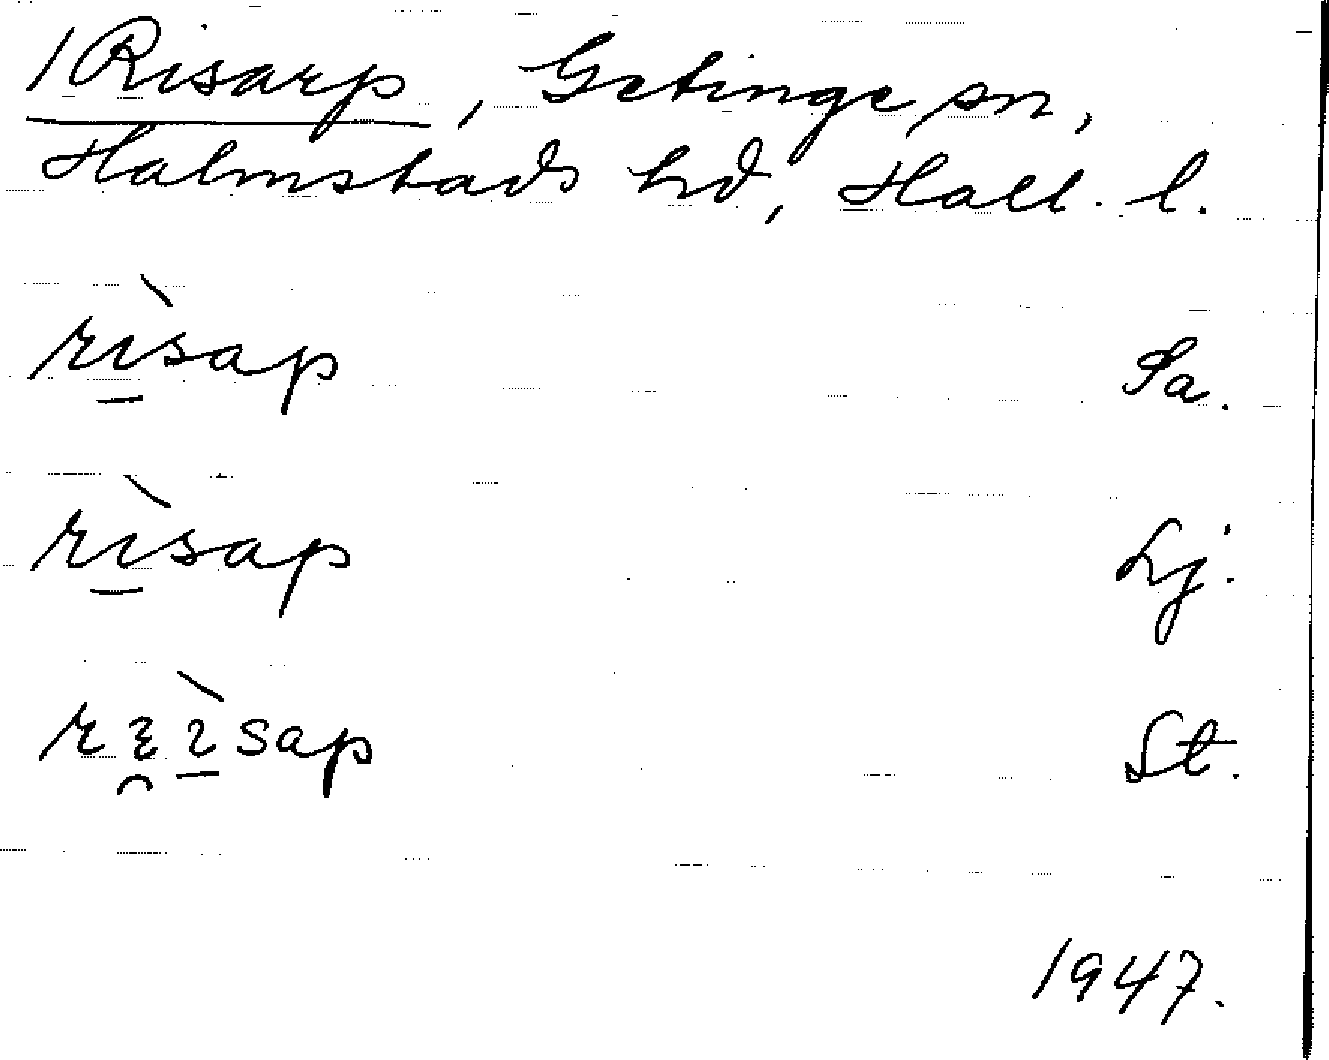 /Risarp, Getinge sn,
Halmstads hd, Hall. l.
rìsap Sa.
rìsap Lj.
rɛ̯ìsap St.
1947.